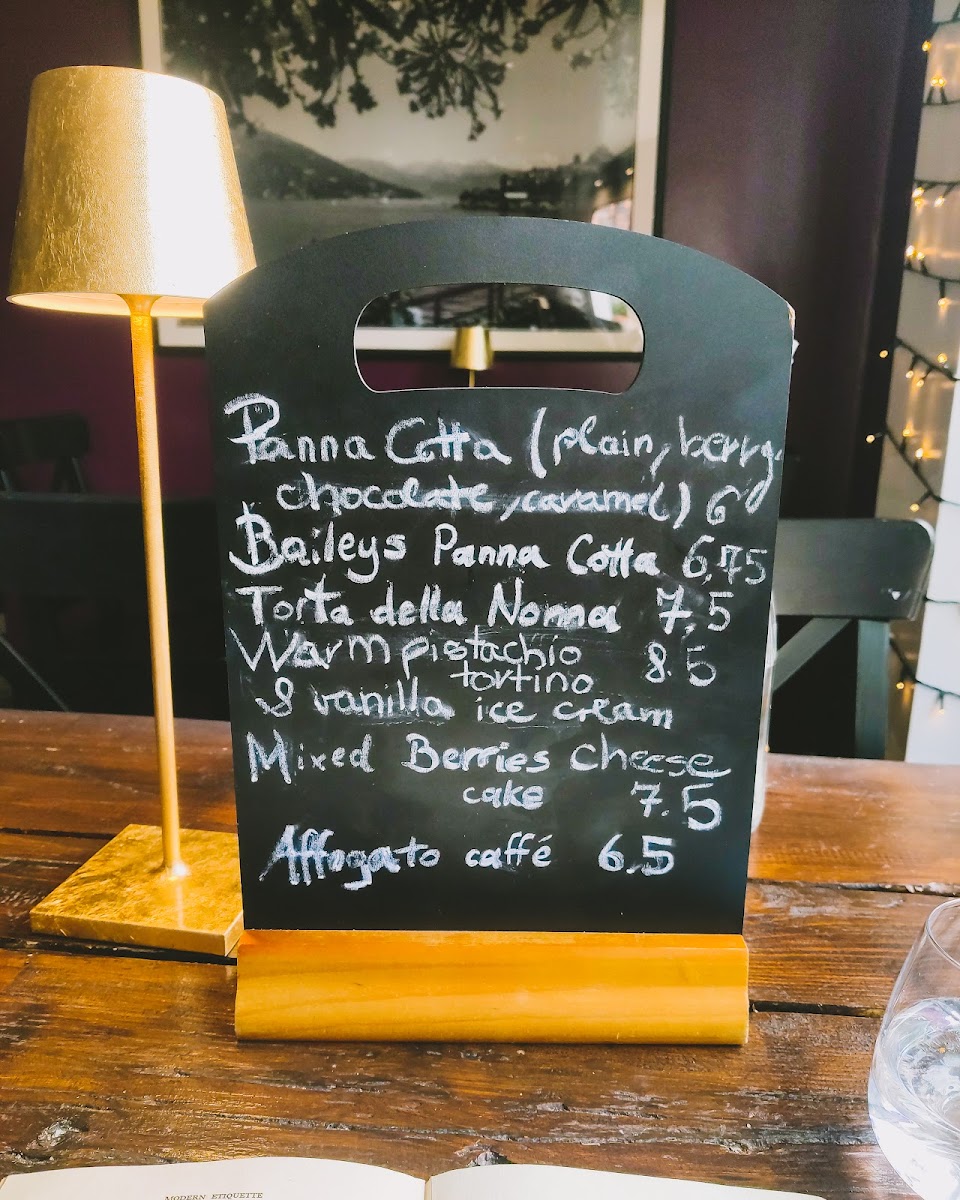 Panna Cotta (plain, berry,
chocolate, caramel) 6
Baileys Panna Cotta 6,75
Torta della Nonna 7,5
Warm pistachio 8.5
tortino
& vanilla ice cream
Mixed Berries cheese
cake 7.5
Affogato caffé 6.5
MODERN ETIQUETTE